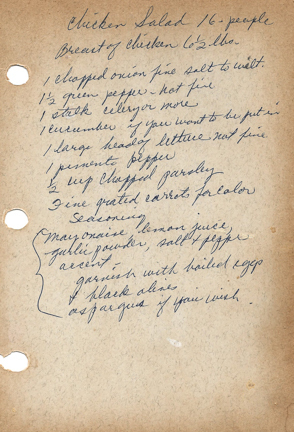 Chicken Salad 16-people
Breast of chicken 6½ lbs.
1 chopped onion fine salt to wilt.
1½ green pepper - not fine
1 stalk celery or more
1 cucumber if you want to be put in
1 large head of lettuce not fine
1 pimento pepper
½ cup chopped parsley
Fine grated carrots for color
Seasoning
mayonaise, lemon juice,
garlic powder, salt & pepper
accent -
garnish with boiled eggs
& black olives
asparagus if you wish.